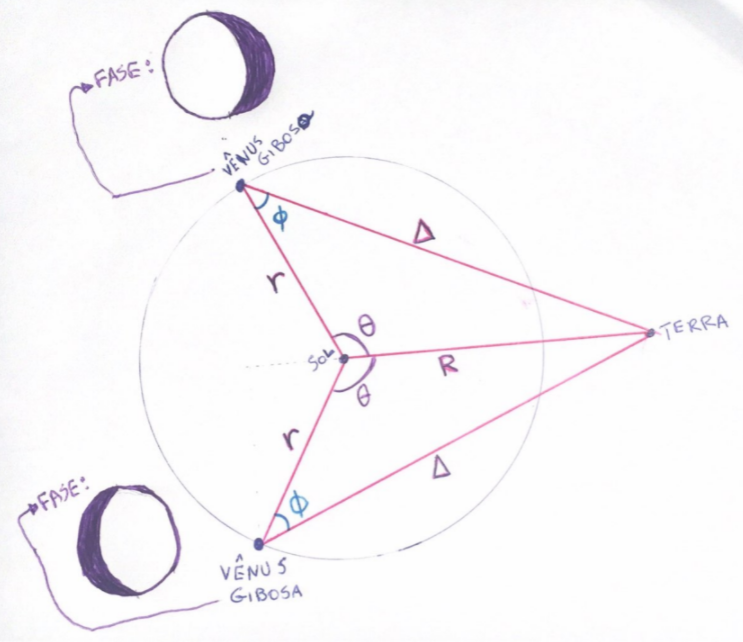 FASE:
VÊNUS
GIBOSO
φ
Δ
r
θ
TERRA
SOL
R
θ
r
Δ
FASE:
φ
VÊNUS
GIBOSA